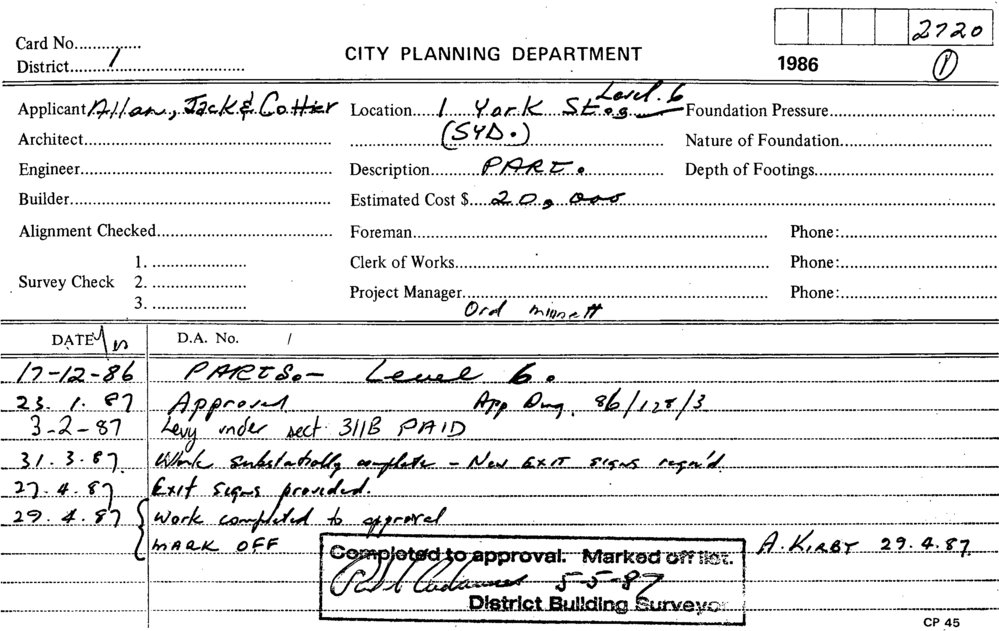 2720
Card No...............
CITY PLANNING DEPARTMENT
District 1
1986
P
Applicant Allan, Jack & Cottier Location 1 York St Level. 6 Foundation Pressure
Architect (SYD.) Nature of Foundation
Engineer Description PART. Depth of Footings
Builder Estimated Cost $ 20,000
Alignment Checked Foreman Phone:
Survey Check 1. Clerk of Works Phone:
2.
3. Project Manager Phone:
Ord Minnett
DATE D.A. No. /
17-12-86 PARTS.- Level 6.
23. 1. 87 Approval App Dwg. 86/128/3
3-2-87 Levy under sect 311B PAID
31.3.87 Work substatially complete - New EXIT signs requ'd.
27.4.87 Exit signs provided.
29.4.87 Work completed to approval
MARK OFF A. KIRBY 29.4.87.
Completed to approval. Marked off list.
5-5-87
District Building Surveyor
CP 45